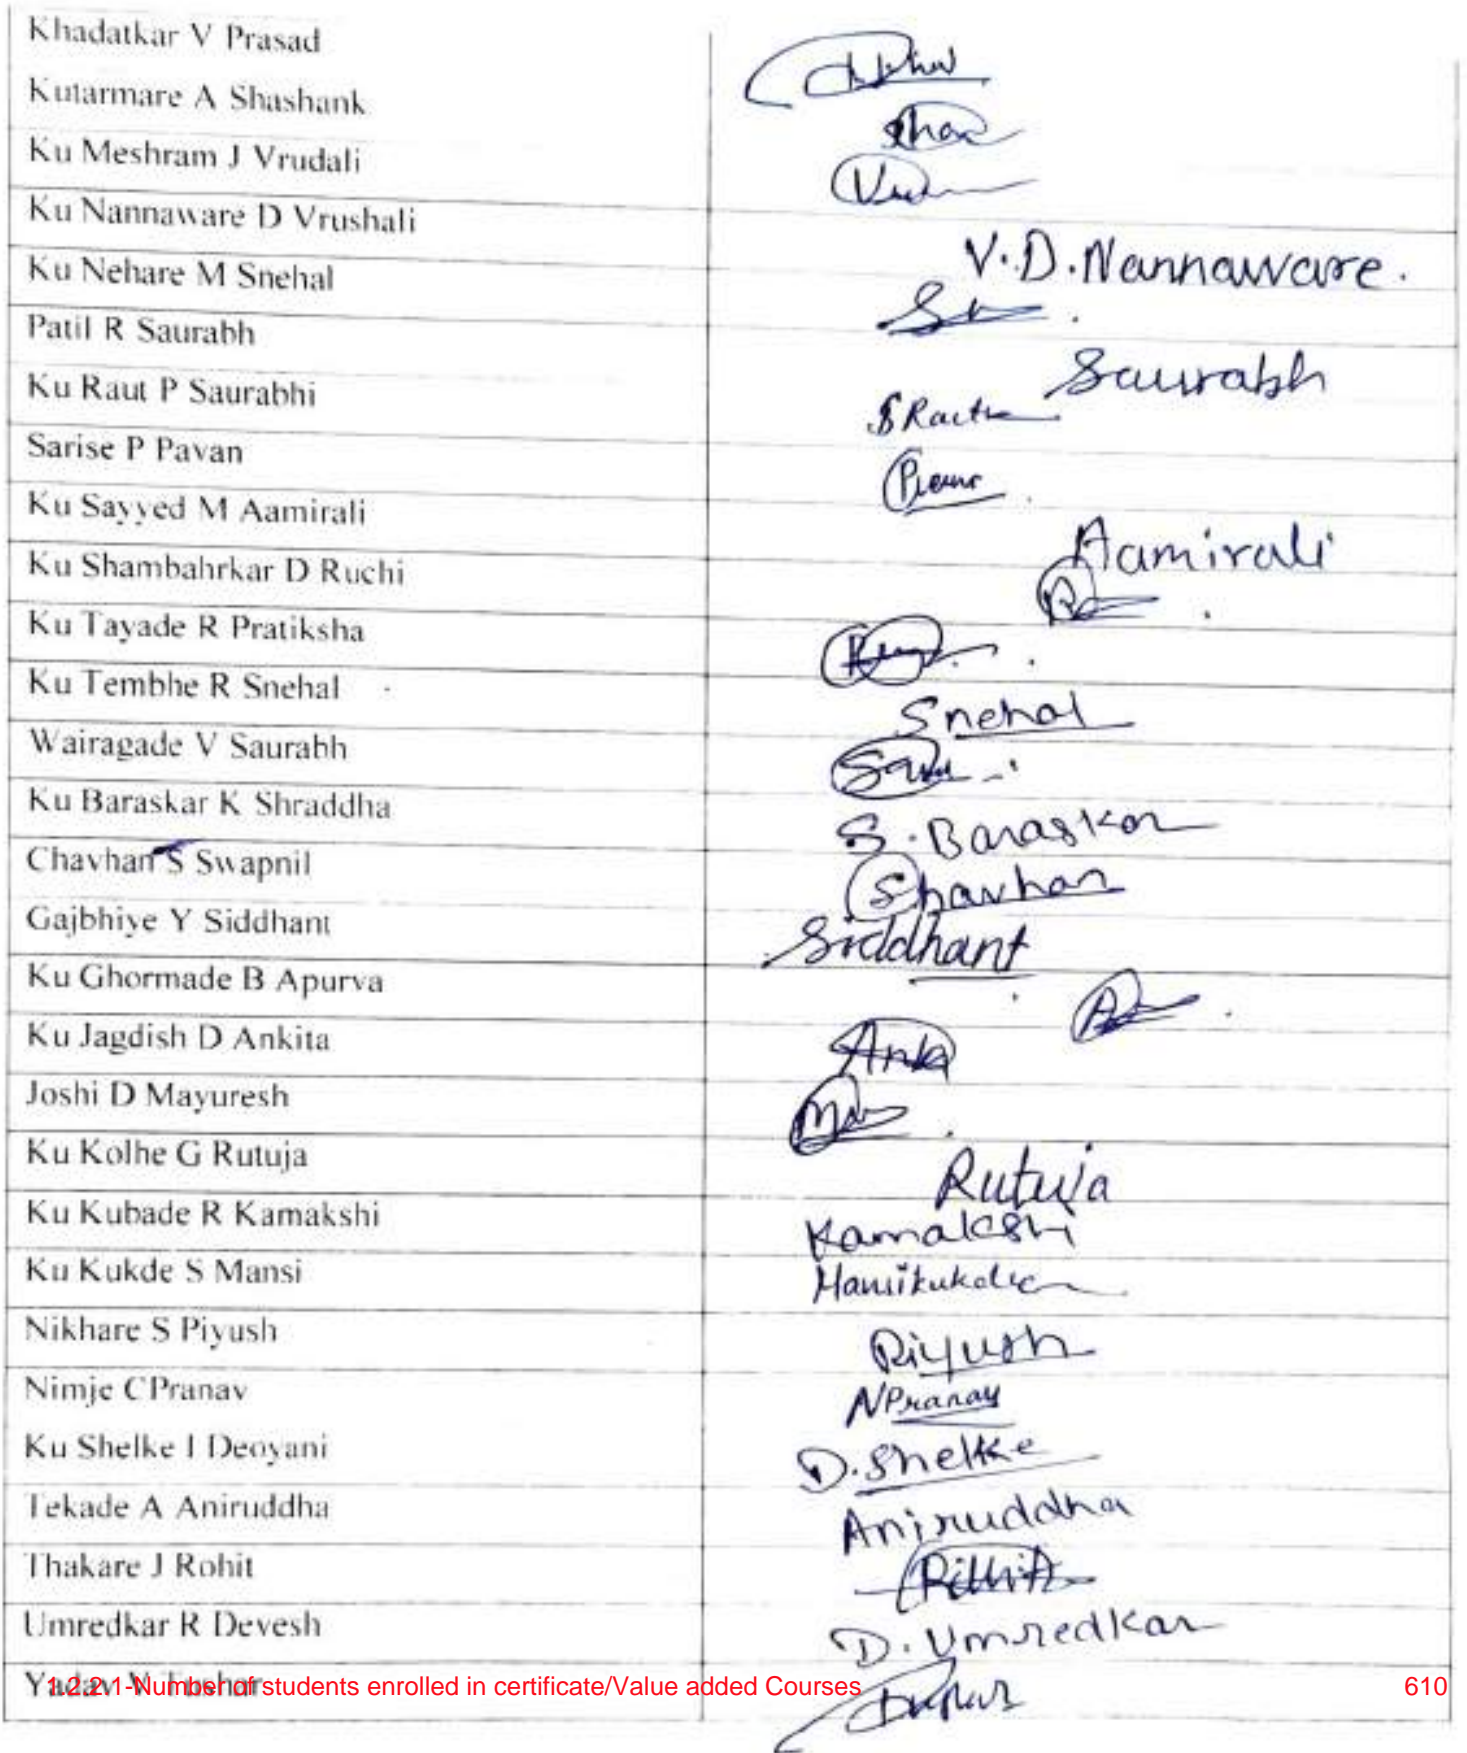 Khadatkar V Prasad
Kutarmare A Shashank
Ku Meshram J Vrudali
Ku Nannaware D Vrushali
V.D.Nannaware.
Ku Nehare M Snehal
Patil R Saurabh
Saurabh
Ku Raut P Saurabhi
Sarise P Pavan
Ku Sayyed M Aamirali
Aamirali
Ku Shambahrkar D Ruchi
Ku Tayade R Pratiksha
Ku Tembhe R Snehal
Snehal
Wairagade V Saurabh
Ku Baraskar K Shraddha
S. Baraskar
Chavhan S Swapnil
Gajbhiye Y Siddhant
Siddhant
Ku Ghormade B Apurva
Ku Jagdish D Ankita
Joshi D Mayuresh
Ku Kolhe G Rutuja
Rutuja
Ku Kubade R Kamakshi
Kamakshi
Ku Kukde S Mansi
Nikhare S Piyush
Piyush
Nimje CPranav
NPranav
Ku Shelke I Deoyani
D. Shelke
Tekade A Aniruddha
Aniruddha
Thakare J Rohit
Umredkar R Devesh
D. Umredkar
Yadav
1.2.2.1-Number of students enrolled in certificate/Value added Courses 610